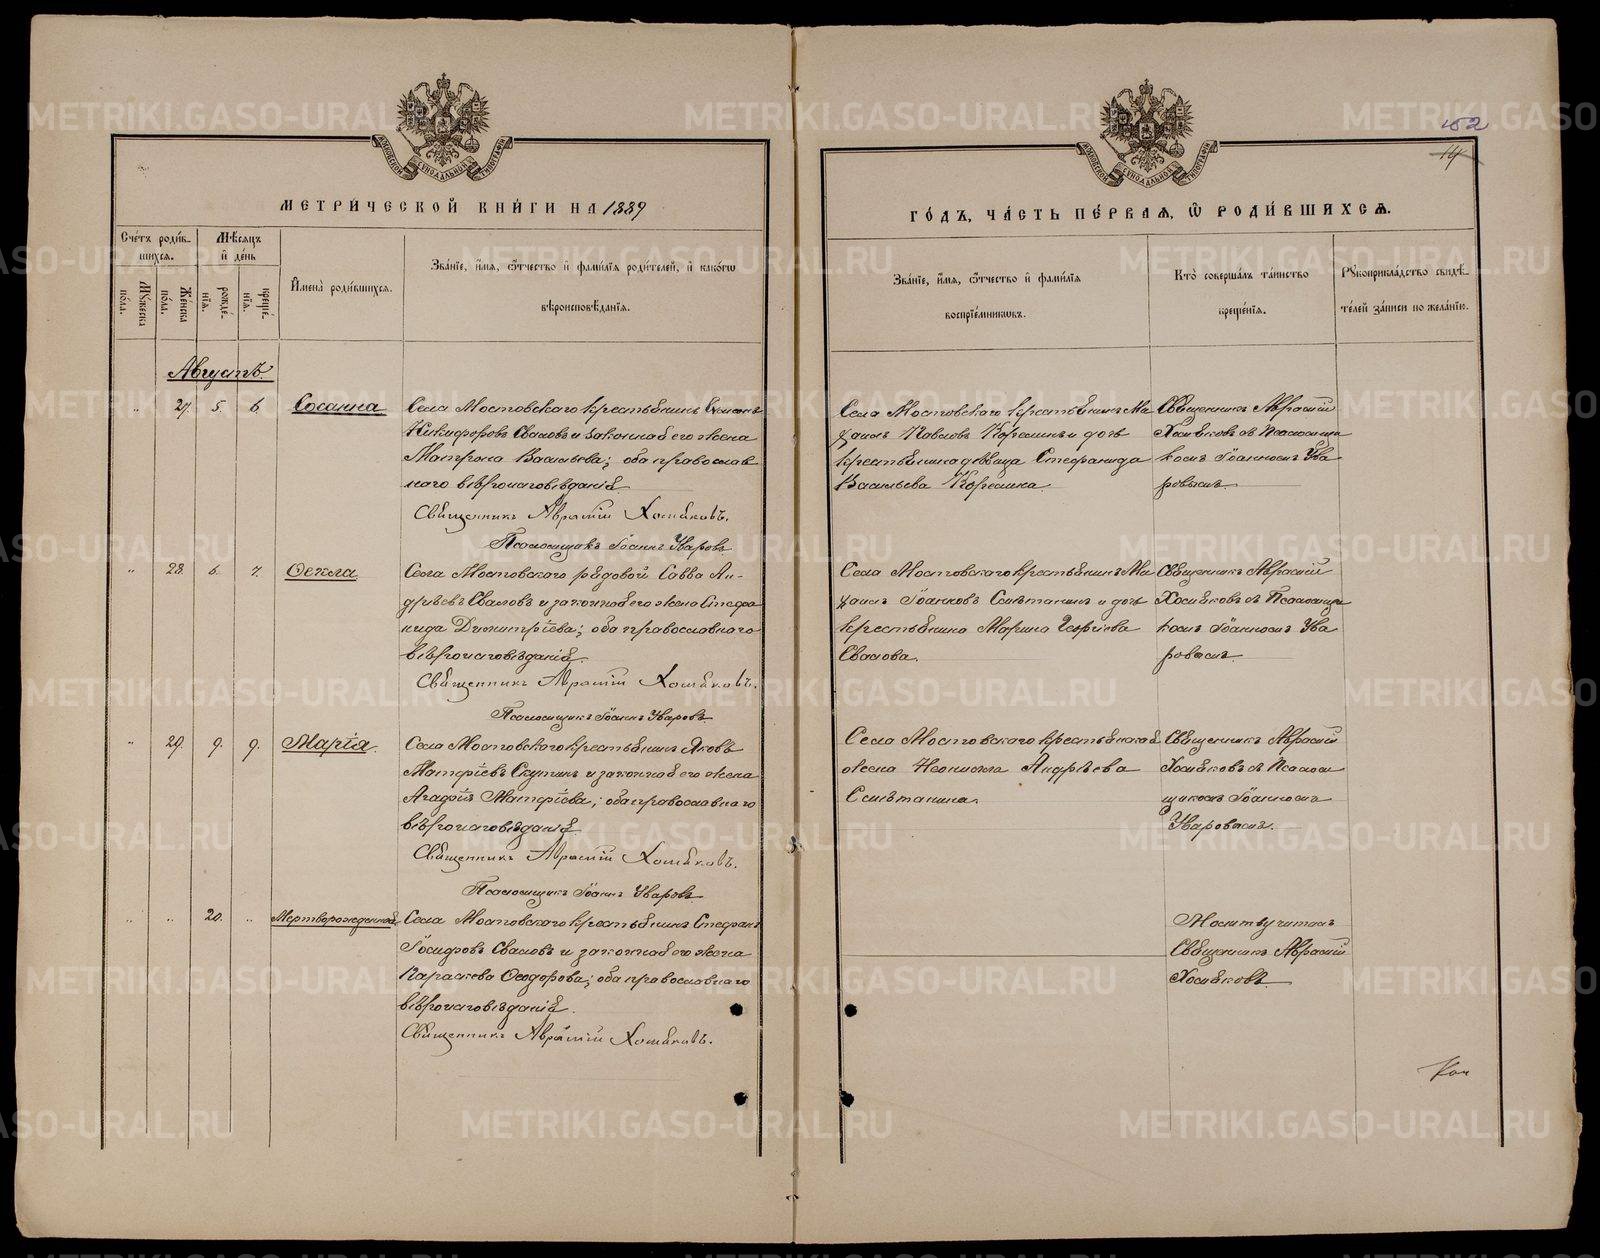 МЕТРИ́ЧЕСКОЙ КНИ́ГИ НА 1889
Сче́тъ роди́в-
шихся.
Мѣсяцъ
и́ де́нь
Му́жеска по́ла.
Же́нска по́ла.
рожде́-
нїя.
креще́-
нїя.
И́мена̀ роди́вшихся.
Зва́нїе, и́мя, ѻ҆́тчество и҆ фами́лїя роди́телей, и҆ како́гѡ
вѣроисповѣ́данїя.
Августъ.
" 27. 5. 6. Сосанна
Села Мостовского крестьянинъ Симеонъ
Никифоровъ Сваловъ и законная его жена
Матрона Васильева; оба православ
наго вѣроисповѣданія.
Священникъ Аврамій Хомяковъ.
Псаломщикъ Іоаннъ Уваровъ.
" 28. 6. 7. Ѳекла.
Села Мостовского рядовой Савва Ан-
дреевъ Сваловъ и законная его жена Стефа
нида Димитріева; оба православнаго
вѣроисповѣданія.
Священникъ Аврамій Хомяковъ.
Псаломщикъ Іоаннъ Уваровъ.
" 29. 9. 9. Марія.
Села Мостовского крестьянинъ Яковъ
Матѳіевъ Скутинъ и законная его жена
Агафія Матѳіева; оба православнаго
вѣроисповѣданія.
Священникъ Аврамій Хомяковъ.
Псаломщикъ Іоаннъ Уваровъ.
" " 20. " Мертворожденный.
Села Мостовского крестьянинъ Стефанъ
Іосифовъ Сваловъ и законная его жена
Параскева Ѳеодорова; оба православнаго
вѣроисповѣданія.
Священникъ Аврамій Хомяковъ.
152
14
ГО́ДЪ, ЧА́СТЬ ПЕ́РВАЯ, Ѡ РОДИ́ВШИХСЯ.
Зва́нїе, и́мя, ѻ҆́тчество и҆ фами́лїя
воспрїе́мникѡвъ.
Кто̀ соверша́лъ та́инство
креще́нїя.
Рꙋкоприкла́дство свидѣ́-
телей за́писи по жела́нїю.
Села Мостовского крестьянинъ Ми
хаилъ Павловъ Корелинъ и дочь
крестьянина дѣвица Стефанида
Васильева Корелина.
Священникъ Аврамій
Хомяковъ съ Псаломщи
комъ Іоанномъ Ува
ровымъ.
Села Мостовского крестьянинъ Ми
хаилъ Іоанновъ Сметанинъ и дочь
крестьянина Марина Георгіева
Свалова.
Священникъ Аврамій
Хомяковъ съ Псаломщи
комъ Іоанномъ Ува
ровымъ.
Села Мостовского крестьянская
жена Неонилла Андреева
Сметанина.
Священникъ Аврамій
Хомяковъ съ Псалом
щикомъ Іоанномъ
Уваровымъ.
Молитву читалъ
Священникъ Аврамій
Хомяковъ.
METRIKI.GASO-URAL.RU